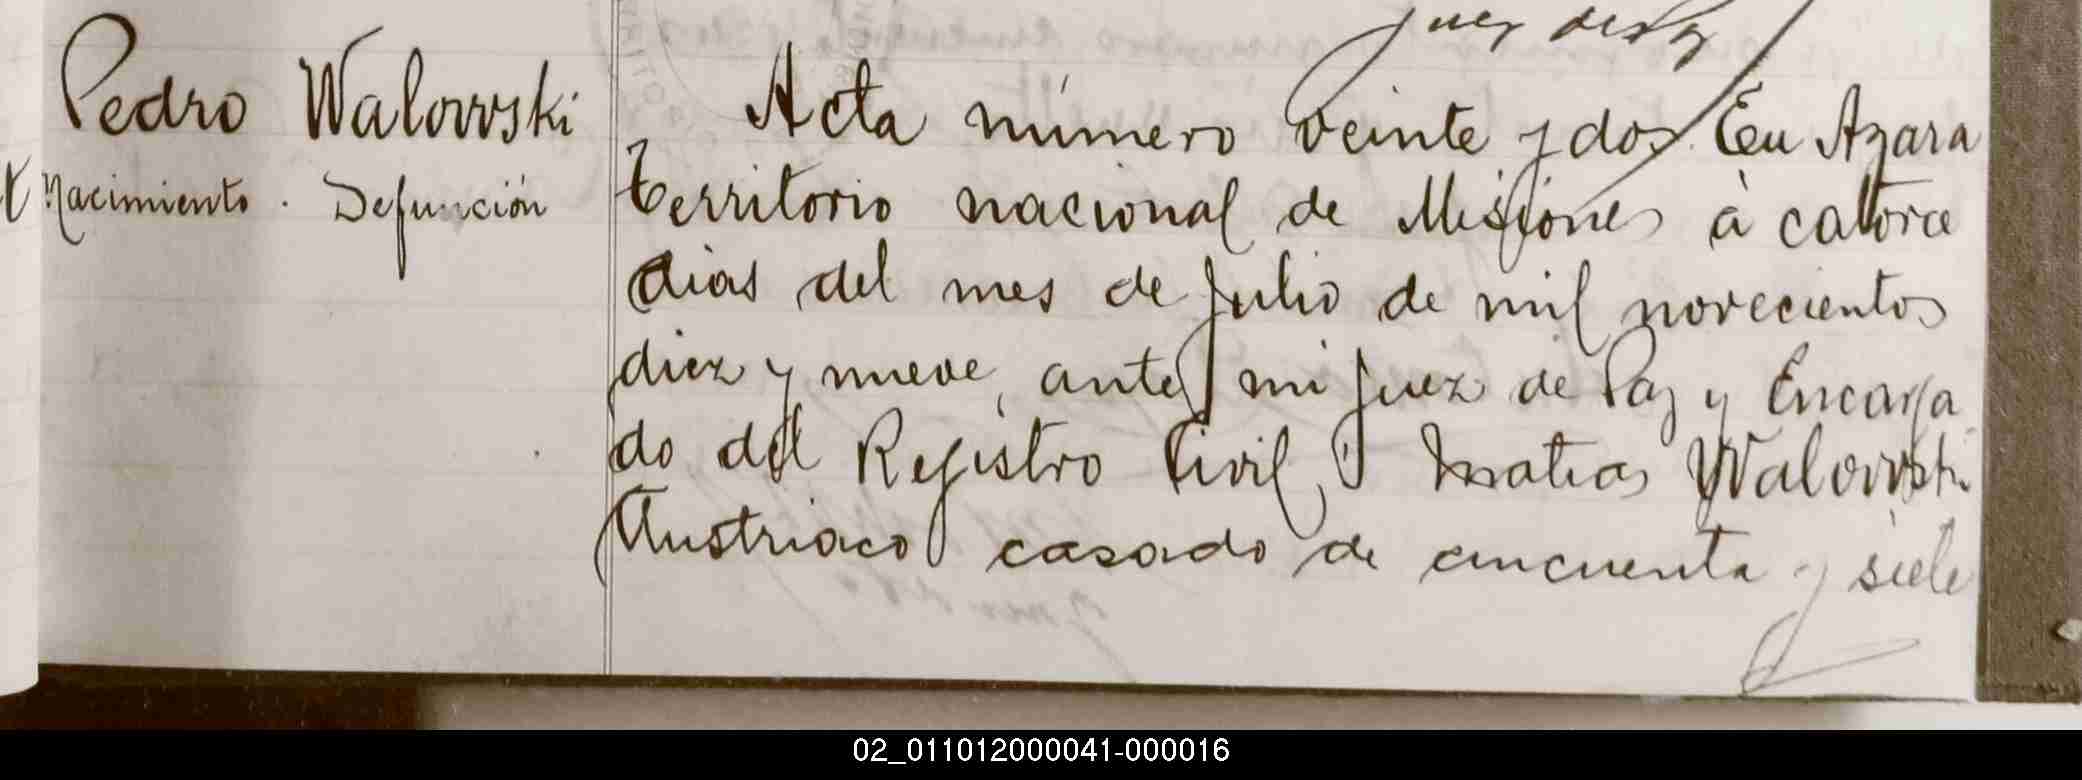 Juez de Paz
Pedro Walowski
Nacimiento . Defunción
Acta número veinte y dos. En Azara
territorio nacional de Misiones à catorce
dias del mes de Julio de mil novecientos
diez y nueve, ante mi Juez de Paz y Encarga
do del Registro Civil, Matias Walowski
Austriaco casado de cincuenta y siete
02_011012000041-000016